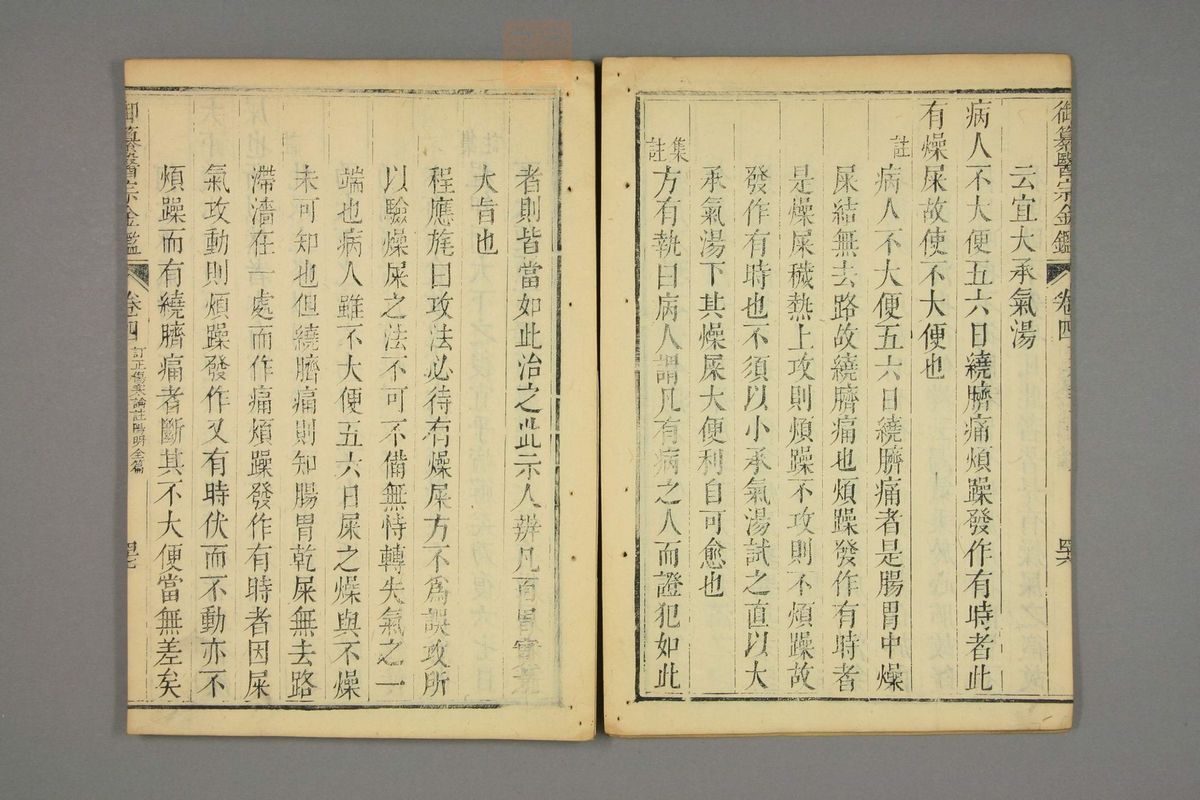 御纂醫宗金鑑 卷四 
云宜大承氣湯
病人不大便五六日繞臍痛煩躁發作有時者此
有燥屎故使不大便也
註 病人不大便五六日繞臍痛者是腸胃中燥
屎結無去路故繞臍痛也煩躁發作有時者
是燥屎穢熱上攻則煩躁不攻則不煩躁故
發作有時也不須以小承氣湯試之直以大
承氣湯下其燥屎大便利自可愈也
集註 方有執曰病人謂凡有病之人而證犯如此
者則皆當如此治之此示人辨凡百胃實之
大旨也
程應旄曰攻法必待有燥屎方不為誤攻所
以驗燥屎之法不可不備無恃轉失氣之一
端也病人雖不大便五六日屎之燥與不燥
未可知也但繞臍痛則知腸胃乾屎無去路
滯濇在一處而作痛煩躁發作有時者因屎
氣攻動則煩躁發作又有時伏而不動亦不
煩躁而有繞臍痛者斷其不大便當無差矣
御纂醫宗金鑑 卷四 訂正傷寒論註陽明全篇